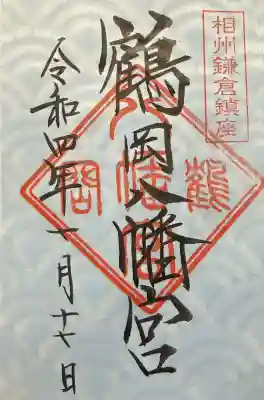 相州鎌倉鎮座
鶴岡八幡宮
令和四年一月十七日